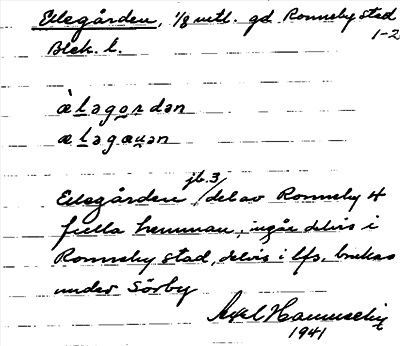 Ellegården, 1/8 mtl. gd Ronneby stad
1-2
Blek. l.
æ̀lagọrdan
ælagaụan
jb. 3
Ellegården / del av Ronneby 4
fjella hemman, ingår delvis i
Ronneby stad, delvis i lfs, brukas
under Sörby
Axel
1941